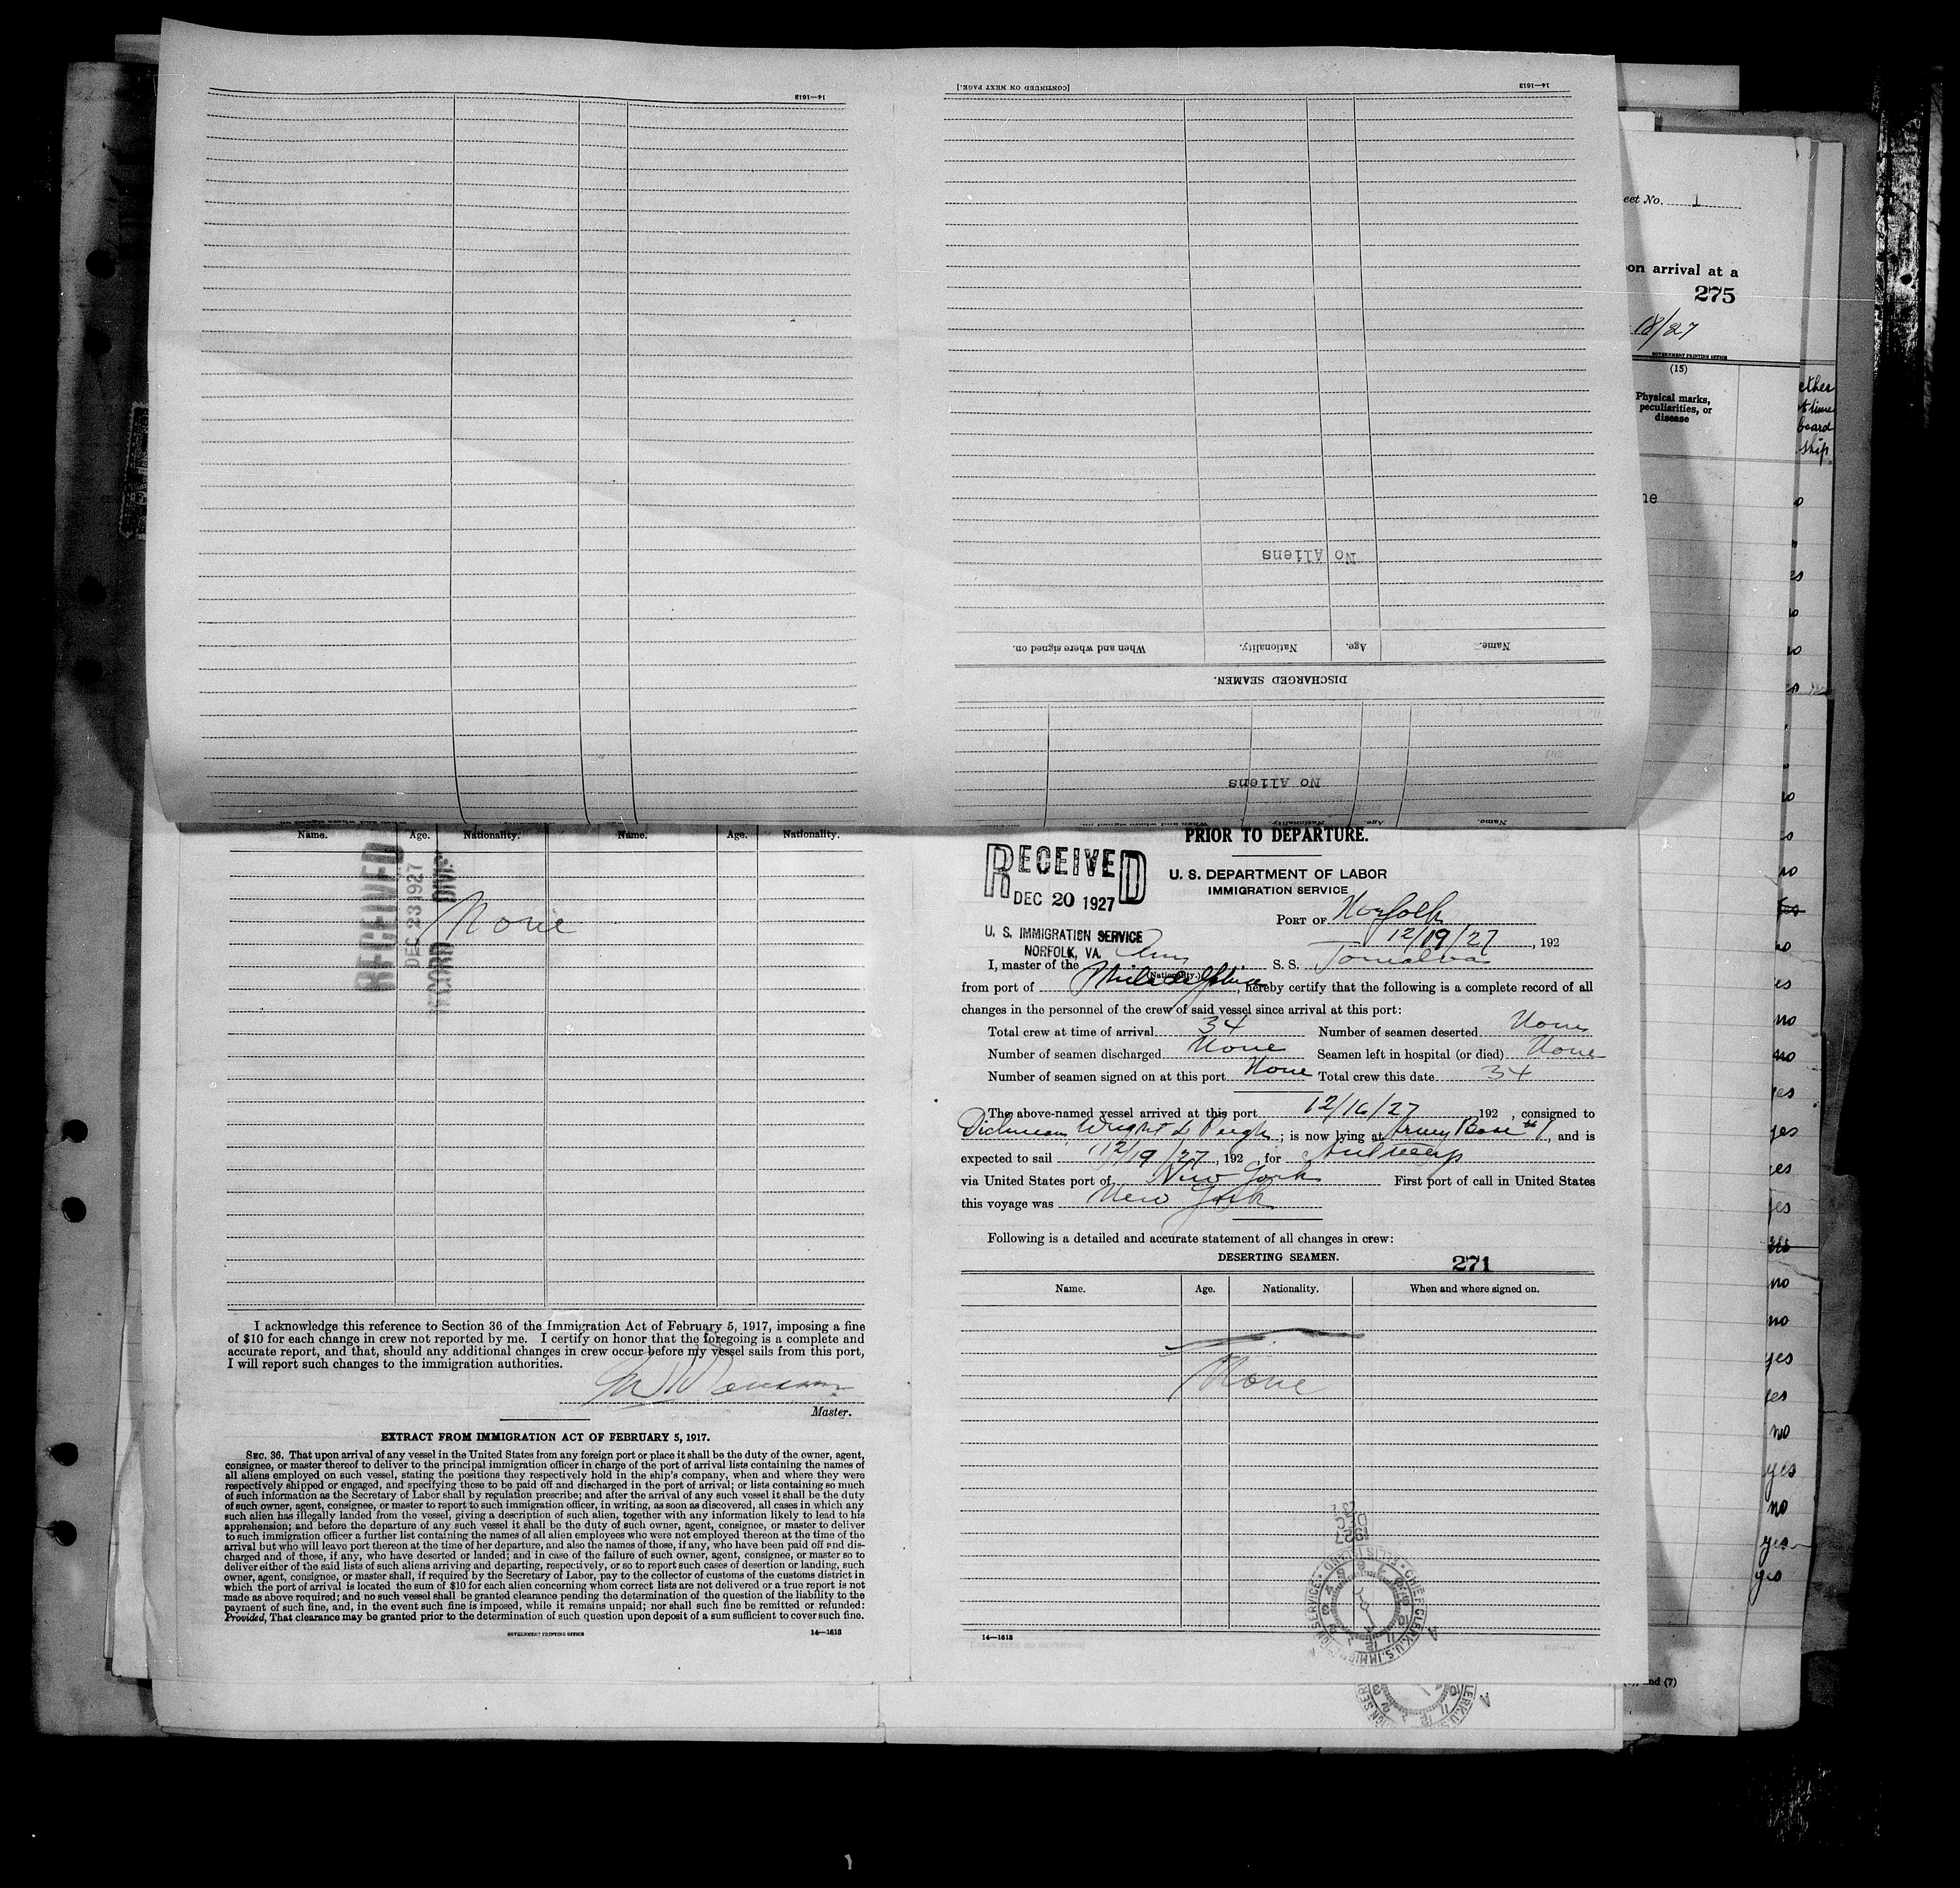 14—1613
[CONTINUED ON NEXT PAGE.]
14—1613
No Aliens
When and where signed on.
Nationality.
Age.
Name.
DISCHARGED SEAMEN.
No Aliens
eet No. 1
on arrival at a
275
18/27
GOVERNMENT PRINTING OFFICE
(15)
Physical marks,
peculiarities, or
disease
ether
t time
board
ship
ne
Name. Age. Nationality. Name. Age. Nationality.
RECEIVED
DEC 23 1927
RECORD DIVIS
None
I acknowledge this reference to Section 36 of the Immigration Act of February 5, 1917, imposing a fine
of $10 for each change in crew not reported by me. I certify on honor that the foregoing is a complete and
accurate report, and that, should any additional changes in crew occur before my vessel sails from this port,
I will report such changes to the immigration authorities.
Master.
EXTRACT FROM IMMIGRATION ACT OF FEBRUARY 5, 1917.
SEC. 36. That upon arrival of any vessel in the United States from any foreign port or place it shall be the duty of the owner, agent,
consignee, or master thereof to deliver to the principal immigration officer in charge of the port of arrival lists containing the names of
all aliens employed on such vessel, stating the positions they respectively hold in the ship's company, when and where they were
respectively shipped or engaged, and specifying those to be paid off and discharged in the port of arrival; or lists containing so much
of such information as the Secretary of Labor shall by regulation prescribe; and after the arrival of any such vessel it shall be the duty
of such owner, agent, consignee, or master to report to such immigration officer, in writing, as soon as discovered, all cases in which any
such alien has illegally landed from the vessel, giving a description of such alien, together with any information likely to lead to his
apprehension; and before the departure of any such vessel it shall be the duty of such owner, agent, consignee, or master to deliver
to such immigration officer a further list containing the names of all alien employees who were not employed thereon at the time of the
arrival but who will leave port thereon at the time of her departure, and also the names of those, if any, who have been paid off and dis-
charged and of those, if any, who have deserted or landed; and in case of the failure of such owner, agent, consignee, or master so to
deliver either of the said lists of such aliens arriving and departing, respectively, or so to report such cases of desertion or landing, such
owner, agent, consignee, or master shall, if required by the Secretary of Labor, pay to the collector of customs of the customs district in
which the port of arrival is located the sum of $10 for each alien concerning whom correct lists are not delivered or a true report is not
made as above required; and no such vessel shall be granted clearance pending the determination of the question of the liability to the
payment of such fine, and, in the event such fine is imposed, while it remains unpaid; nor shall such fine be remitted or refunded:
Provided, That clearance may be granted prior to the determination of such question upon deposit of a sum sufficient to cover such fine.
GOVERNMENT PRINTING OFFICE 14—1613
PRIOR TO DEPARTURE.
RECEIVED
DEC 20 1927
U. S. IMMIGRATION SERVICE
NORFOLK, VA.
U. S. DEPARTMENT OF LABOR
IMMIGRATION SERVICE
PORT OF Norfolk
12/19/27, 192
I, master of the Am S. S. Tomalva
(Nationality.)
from port of Philadelphia, hereby certify that the following is a complete record of all
changes in the personnel of the crew of said vessel since arrival at this port:
Total crew at time of arrival 34 Number of seamen deserted None
Number of seamen discharged None Seamen left in hospital (or died) None
Number of seamen signed on at this port None Total crew this date 34
The above-named vessel arrived at this port 12/16/27 192 , consigned to
Dichmann, Wright & Pugh; is now lying at Army Base # 1, and is
expected to sail 12/19/27, 192 for Antwerp
via United States port of New York First port of call in United States
this voyage was New York
Following is a detailed and accurate statement of all changes in crew:
DESERTING SEAMEN.
271
Name. Age. Nationality. When and where signed on.
None
1927
DEC
CHIEF CLERK, U.S. IMMIGRATION SERVICE • ELLIS ISLAND
14—1613
and (7)